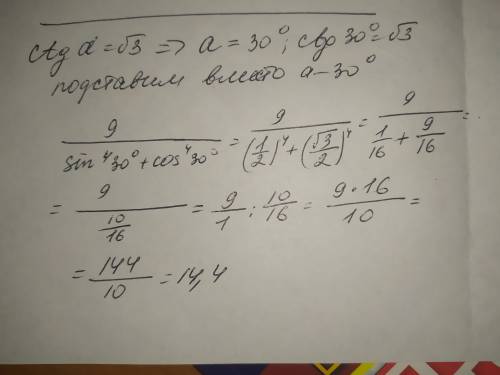 ctg α = √3 => α = 30°; ctg 30° = √3
подставим вместо α - 30°
9/(sin⁴30° + cos⁴30°) = 9/((1/2)⁴ + (√3/2)⁴) = 9/(1/16 + 9/16) =
= 9/(10/16) = 9/1 : 10/16 = 9·16/10 =
= 144/10 = 14,4